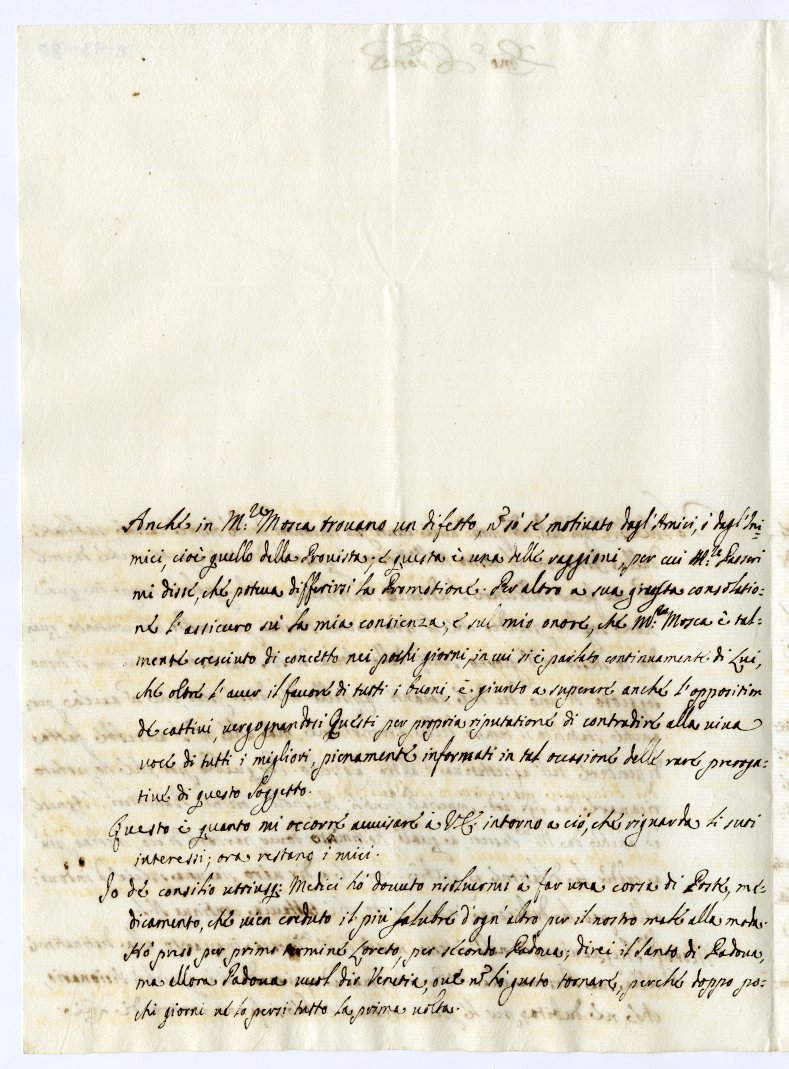 Anche in M.r Mosca trovano un difetto, nō sò se motivato dagl'Amici, ò dagl'Ini=
mici, cioè quello della Provista; e questa è una delle raggioni, per cui M.r Passeri
mi disse, che poteva differirsi la Promotione. Per altro a sua giusta consolatio=
ne l'assicuro sù la mia consienza, e sul mio onore, che M.r Mosca è tal=
mente cresciuto di concetto nei pochi giorni, in cui si è parlato continuamente di Lui,
che oltre l'aver il favore di tutti i buoni, è giunto a superare anche l'opposition
de cattivi, vergognandosi Questi per propria riputatione di contradire alla viva
voce di tutti i migliori, pienamente informati in tal occasione delle rare preroga=
tive di questo Soggetto.
Questo è quanto mi occorre avvisare à V.E. intorno a ciò, che riguarda li suoi
interessi; ora restano i miei.
Io de consilio utriusq; Medici hò dovuto risolvermi à far una corsa di Poste, me=
dicamento, che vien creduto il più salubre d'ogn'altro per il nostro male alla moda.
Hò preso per primo termine Loreto, per secondo Padova; direi il Santo di Padova,
ma allora Padova vuol dir Venetia, ove nō hò gusto tornare, perche doppo po=
chi giorni ve lo persi tutto la prima volta.